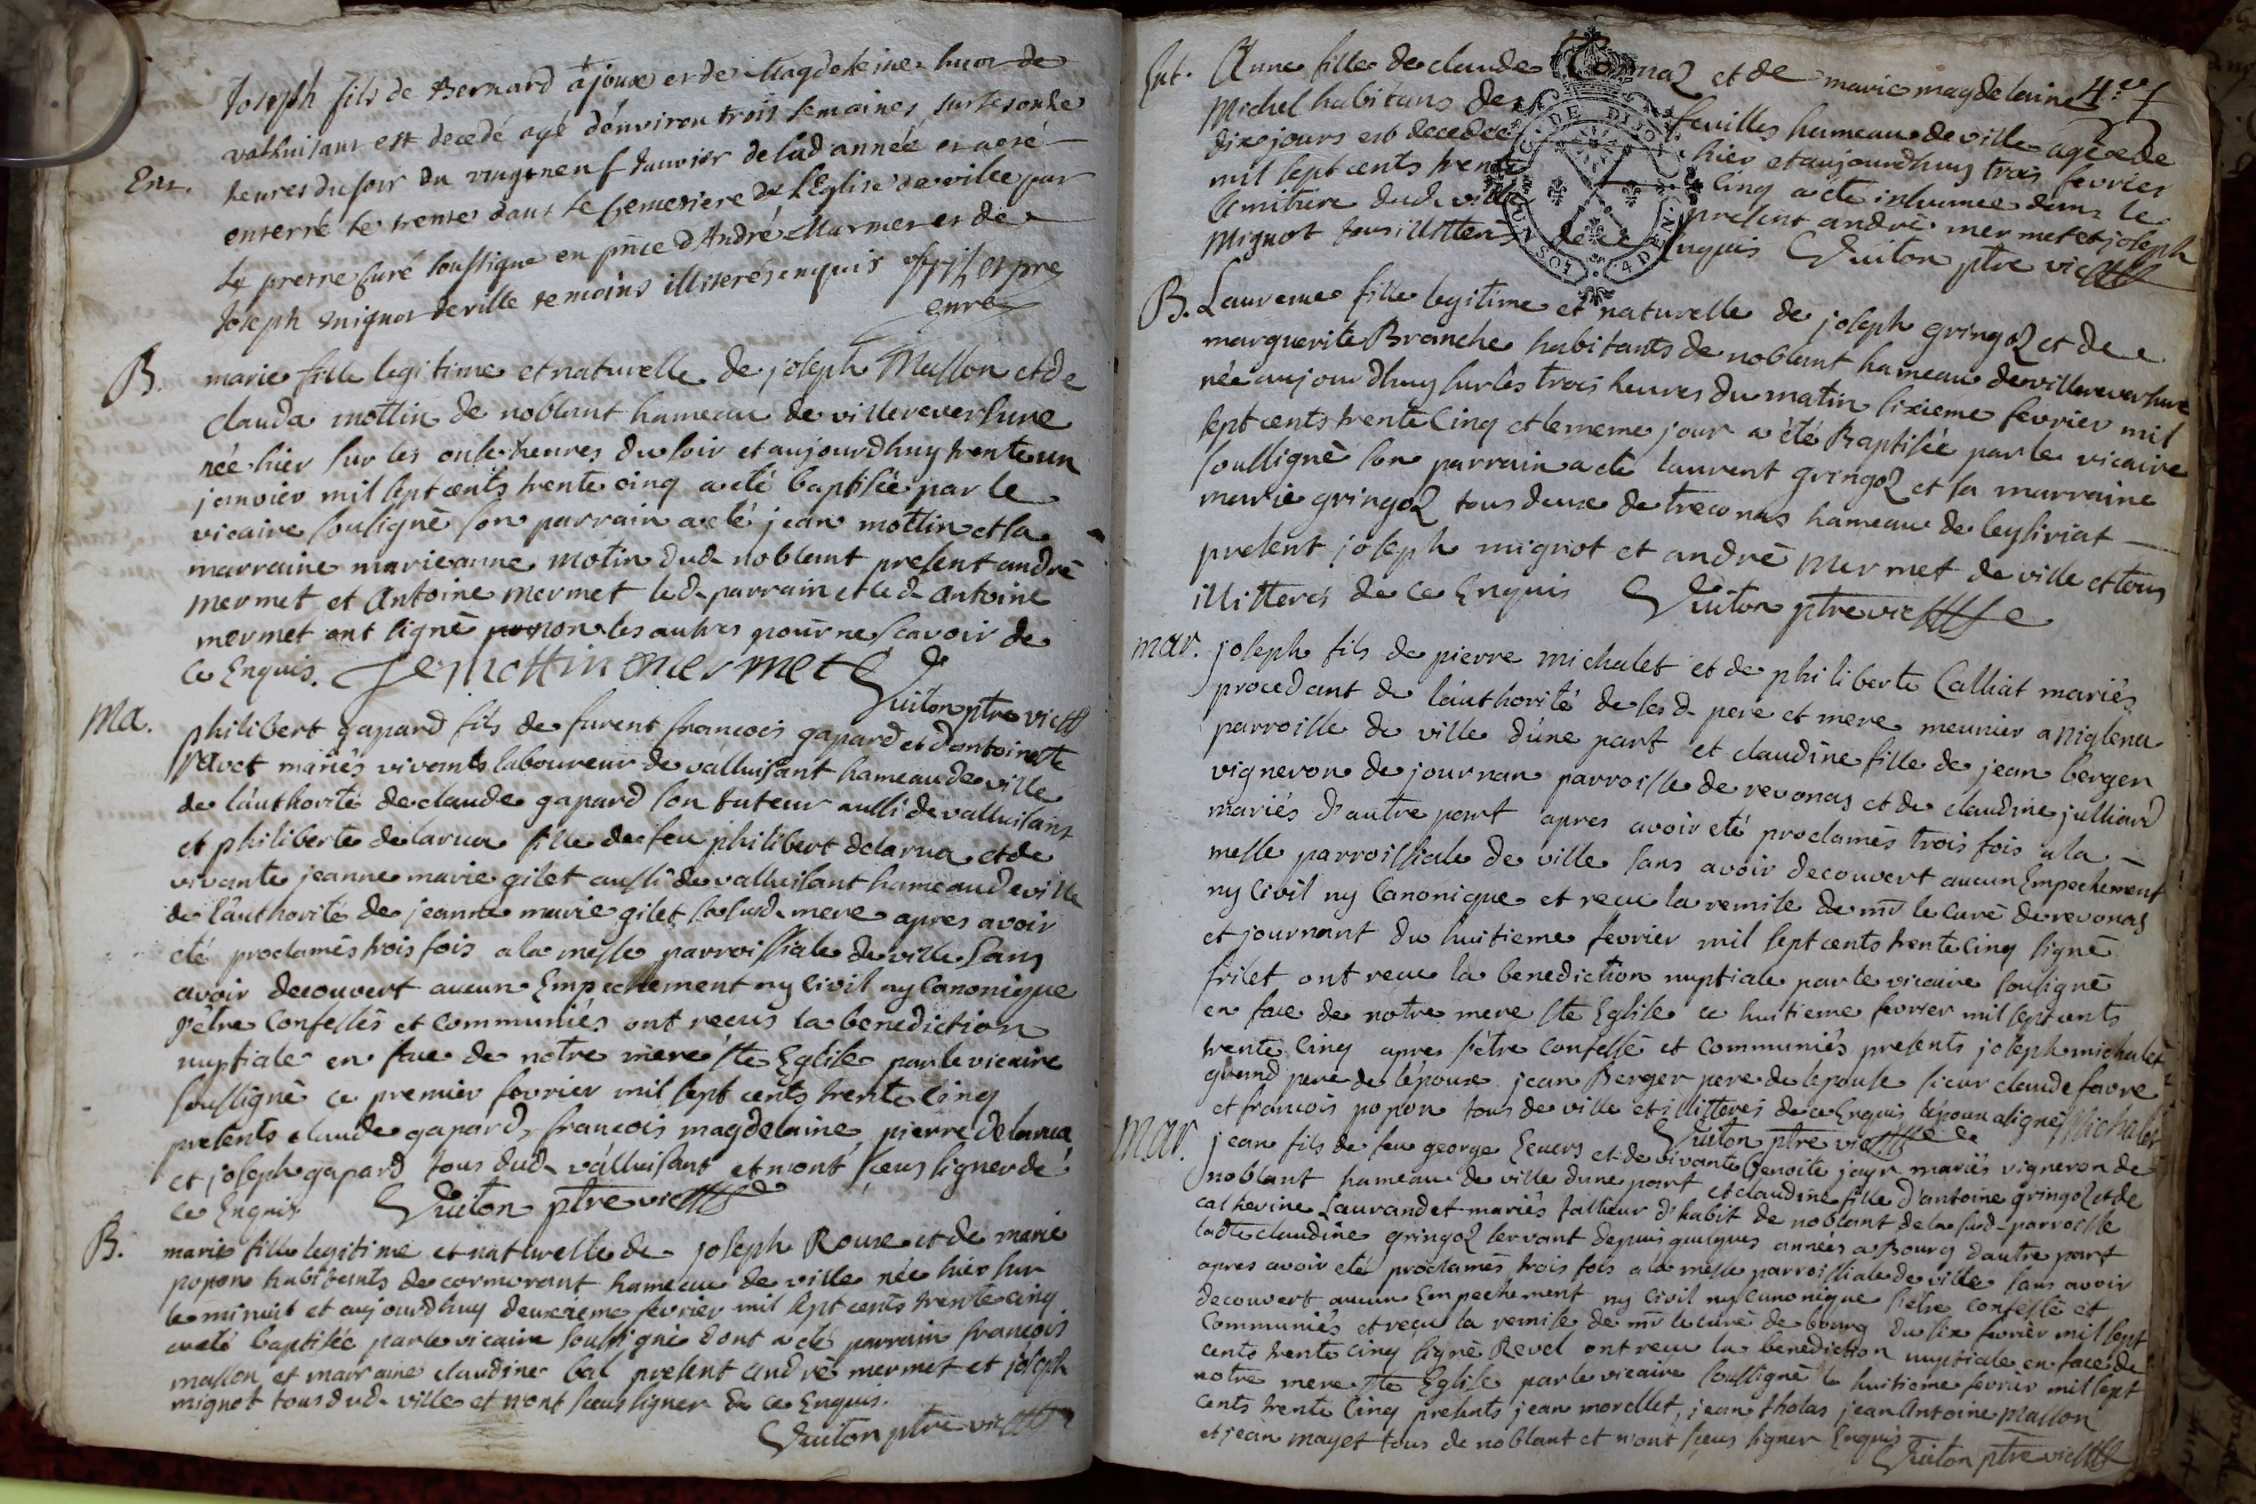 Joseph fils de Bernard ajoux et de Magdeleine huor de
valluisant est decedé agé d'environ trois semaines sur les onze
heures du soir du vingtneuf Janvier de lad année et a eté
Ent.
enterré le trente dans le Cemetiere de l'Eglise de ville par
Le pretre Curé soussigne en pnce d'André Mermet et de
Joseph mignot de ville temoins illiterés enquis
B.
marie fille legitime et naturelle de joseph Masson et de
clauda mottin de noblant hameau de villereversure
née hier sur les onse heures du soir et aujourdhuy trente un
janvier mil sept cents trente cinq a eté baptisée par le
vicaire sousigné son parrain a eté jean mottin et la
marraine marie anne motin dud noblant present andré
mermet et Antoine mermet led parrain et led Antoine
mermet ont signé non les autres pour ne scavoir de
Ce Enquis. Je mottin mermet
Guiton ptre vic
Ma.
philibert gapard fils de furent francois gapard et d'antoinette
pavet mariés vivants laboureur de valluisant hameau de ville
de l'authorité de claude gapard son tuteur aussi de valluisant
et philiberte delarua fille de feu philibert delarua et de
vivante jeanne marie gilet aussi de valluisant hameau de ville
de l'authorité de jeanne marie gilet sa susd mere apres avoir
eté proclamés trois fois a la messe parroissiale de ville sans
avoir decouvert aucun Empechement ny Civil ny Canonique
s'etre Confessés et communiés ont recus la benediction
nuptiale en face de notre mere ste Eglise par le vicaire
soussigné ce premier fevrier mil sept cents trente Cinq
presents claude gapard, francois magdelaine, pierre delarua
et joseph gapard tous dud valluisant et n'ont sceus signer de
Ce Enquis Guiton ptre vic
B.
marie fille legitime et naturelle de joseph Roux et de marie
popon habitants de cormorant hameau de ville née hier sur
le minuit et aujourdhuy deuxieme fevrier mil sept cents trente cinq
a eté baptisée par le vicaire soussigné dont a eté parrain francois
masson et marraine claudine bal present andré mermet et joseph
mignot tous dud ville et n'ont sceus signer de ce Enquis.
Guiton ptre vic
Ent. Anne fille de claude et de marie magdelaine 4e
Michel habitans des feuilles hameau de ville agée de
dix jours est decedée hier et aujourdhuy trois fevrier
mil sept cents trente Cinq a eté inhumée dans le
Cimitiere dud ville present andré mermet et joseph
Mignot tous illitterés de ce Enquis Guiton ptre vic
B. Laurence fille legitime et naturelle de joseph gringoz et de
marguerite Branche habitants de noblant hameau de villereversure
née aujourdhuy sur les trois heures du matin sixieme fevrier mil
sept cents trente Cinq et le meme jour a été Baptisée par le vicaire
soussigné son parrain a eté laurent gringoz et sa marraine
marie gringoz tous deux de treconnas hameau de leyssiriat
present joseph mignot et andré mermet de ville et tous
illitteres de ce Enquis Guiton ptre vic
mar. joseph fils de pierre michalet et de philiberte Calliat mariés
procedant de l'authorité de ses d pere et mere meunier a niglena
parroisse de ville d'une part et claudine fille de jean berger
vigneron de journan parroisse de revonas et de claudine julliard
mariés d'autre part apres avoir eté proclamés trois fois a la
messe parroissiale de ville sans avoir decouvert aucun Empechement
ny Civil ny Canonique et recu la remise de mr le Curé de revonas
et journant du huitieme fevrier mil sept cents trente cinq signé
frilet ont recu la benediction nuptiale par le vicaire sousigné
en face de notre mere ste Eglise ce huitieme fevrier mil sept cents
trente Cinq apres s'être Confessé et communiés presents joseph michalet
grand pere de l'epoux jean Berger pere de lepouse sieur claude favre
et francois popon tous de ville et illitteres de ce Enquis lepoux a signé Michalet
Guiton ptre vic
mar. jean fils de feu george Levers et de vivante Benoite jayr mariés vigneron de
noblant hameau de ville d'une part et claudine fille d'antoine gringoz et de
catherine Laurandet mariés tailleur d'habit de noblant de la susd parroisse
ladte claudine gringoz servant depuis quelques années a Bourg d'autre part
apres avoir eté proclamés trois fois a la messe parroissiale de ville sans avoir
decouvert aucun Empechement ny Civil ny Canonique s'etre confessé et
Communiés et recu la remise de mr le curé de bourg du six fevrier mil sept
cents trente cinq signé Revel ont recu la benediction nuptiale en face de
notre mere ste Eglise par le vicaire soussigné le huitieme fevrier mil sept
cents trente Cinq presents jean morellet, jean tholas jean Antoine Masson
et jean mayet tous de noblant et n'ont sceus signer Enquis
Guiton ptre vic